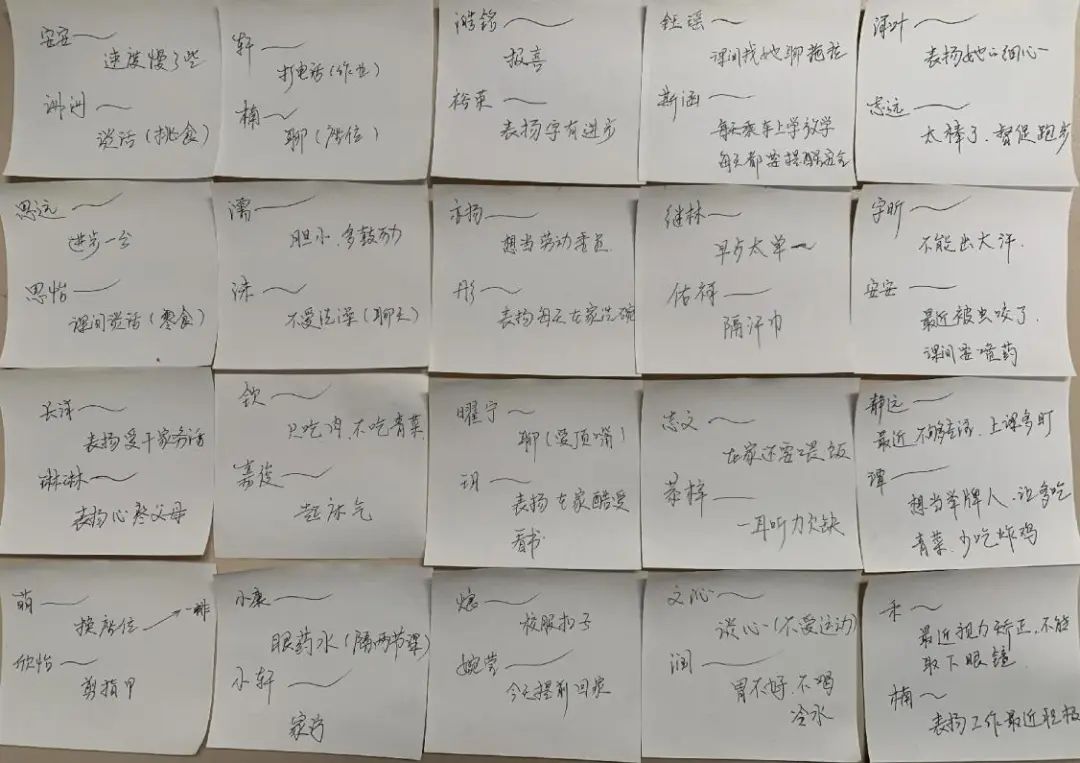 安安——
速度慢了些
洲洲——
谈话(挑食)
轩——
打电话(作业)
楠——
聊(座位)
浩铭——
报喜
裕东——
表扬字有进步
钰瑶——
课间找她聊拖拉
斯涵——
每天乘车上学放学
每天都要提醒安全
泽叶——
表扬她的细心
志远——
太棒了.督促跑步
思远——
进步一分
思怡——
课间谈话(零食)
濡——
胆小.多鼓励
沫——
不爱洗澡(聊天)
亦扬——
想当劳动委员
彤——
表扬每天在家洗碗
继林——
早点太单一
佑禄——
隔汗巾
宇昕——
不能出大汗.
安安——
最近被虫咬了.
课间要喷药
长泽——
表扬爱干家务活
琳琳——
表扬心疼父母
钦——
只吃肉.不吃青菜
嘉俊——
起床气
曜宁——
聊(爱顶嘴)
玥——
表扬在家酷爱
看书
志文——
在家还要喂饭
恭梓——
一耳听力欠缺
静远——
最近不够专注.上课多盯
谭——
想当举牌人.让多吃
青菜.少吃炸鸡
萌——
换座位→一排
欣怡——
剪指甲
小康——
眼药水(隔两节课)
小轩——
家访
熄——
校服扣子
婉莹——
今天提前回家
文沁——
谈心(不爱运动)
润——
胃不好.不喝
冷水
禾——
最近视力矫正.不能
取下眼镜
楠——
表扬工作最近积极